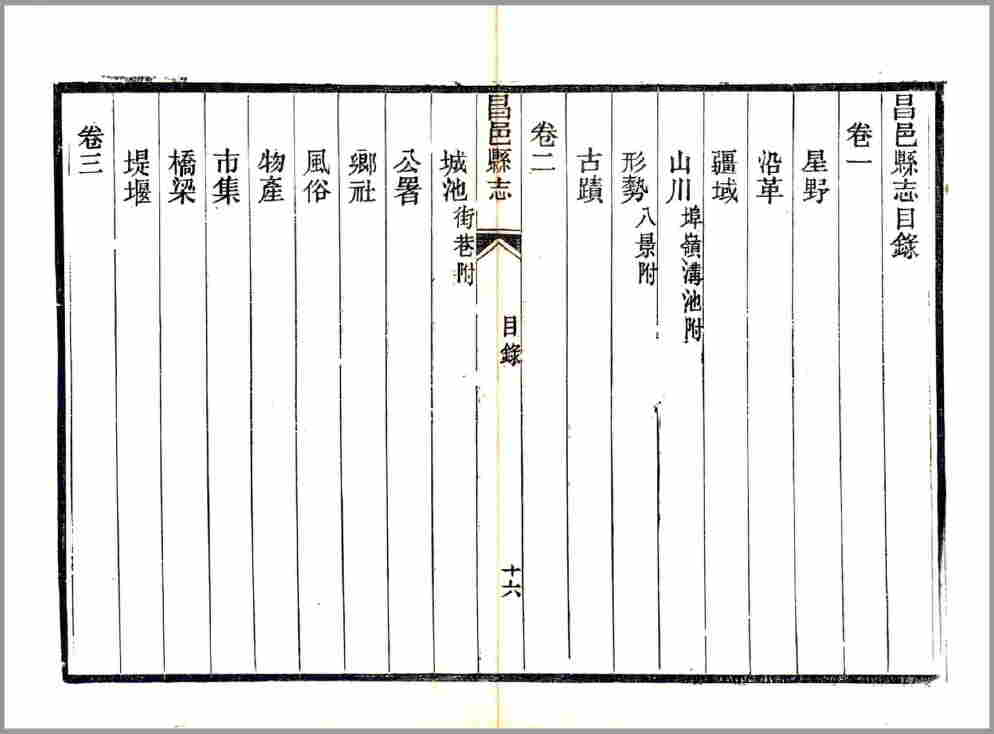 昌邑縣志目錄
卷一
星野
沿革
疆域
山川埠嶺溝池附
形勢八景附
古蹟
卷二
昌邑縣志
目錄
十六
城池街巷附
公署
鄉社
風俗
物產
市集
橋梁
堤堰
卷三